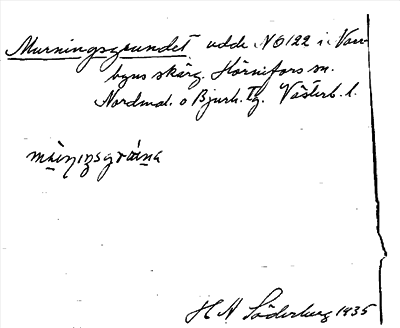 Murningsgrundet udde NO/22 i Norr-
byns skärg. Hörnefors sn.
Nordmal. o Bjurh. tg. Västerb. l.
H N Söderberg 1935